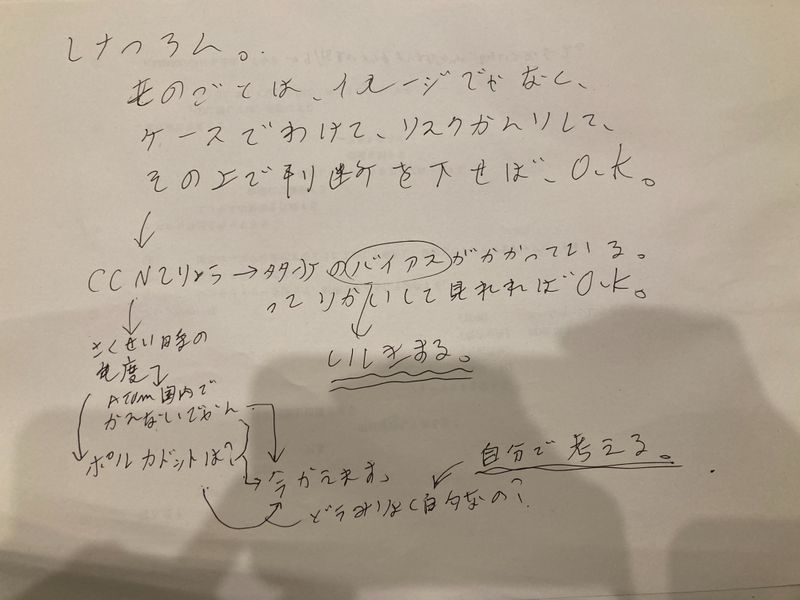 けつろん。
ものごとは、イメージでかなく、
ケースでわけて、リスクかんりして、
その上で判断を下せば、O.K。
CCNてりょう→ のバイアスがかかっている。
ってりかいして見れればO.K。
さくせい日時の
速度
Atom国内で
かえないでやん
しじきまる。
ポルカドットは?
今かえます。
自分で考える。
どうみりょく自分なの?